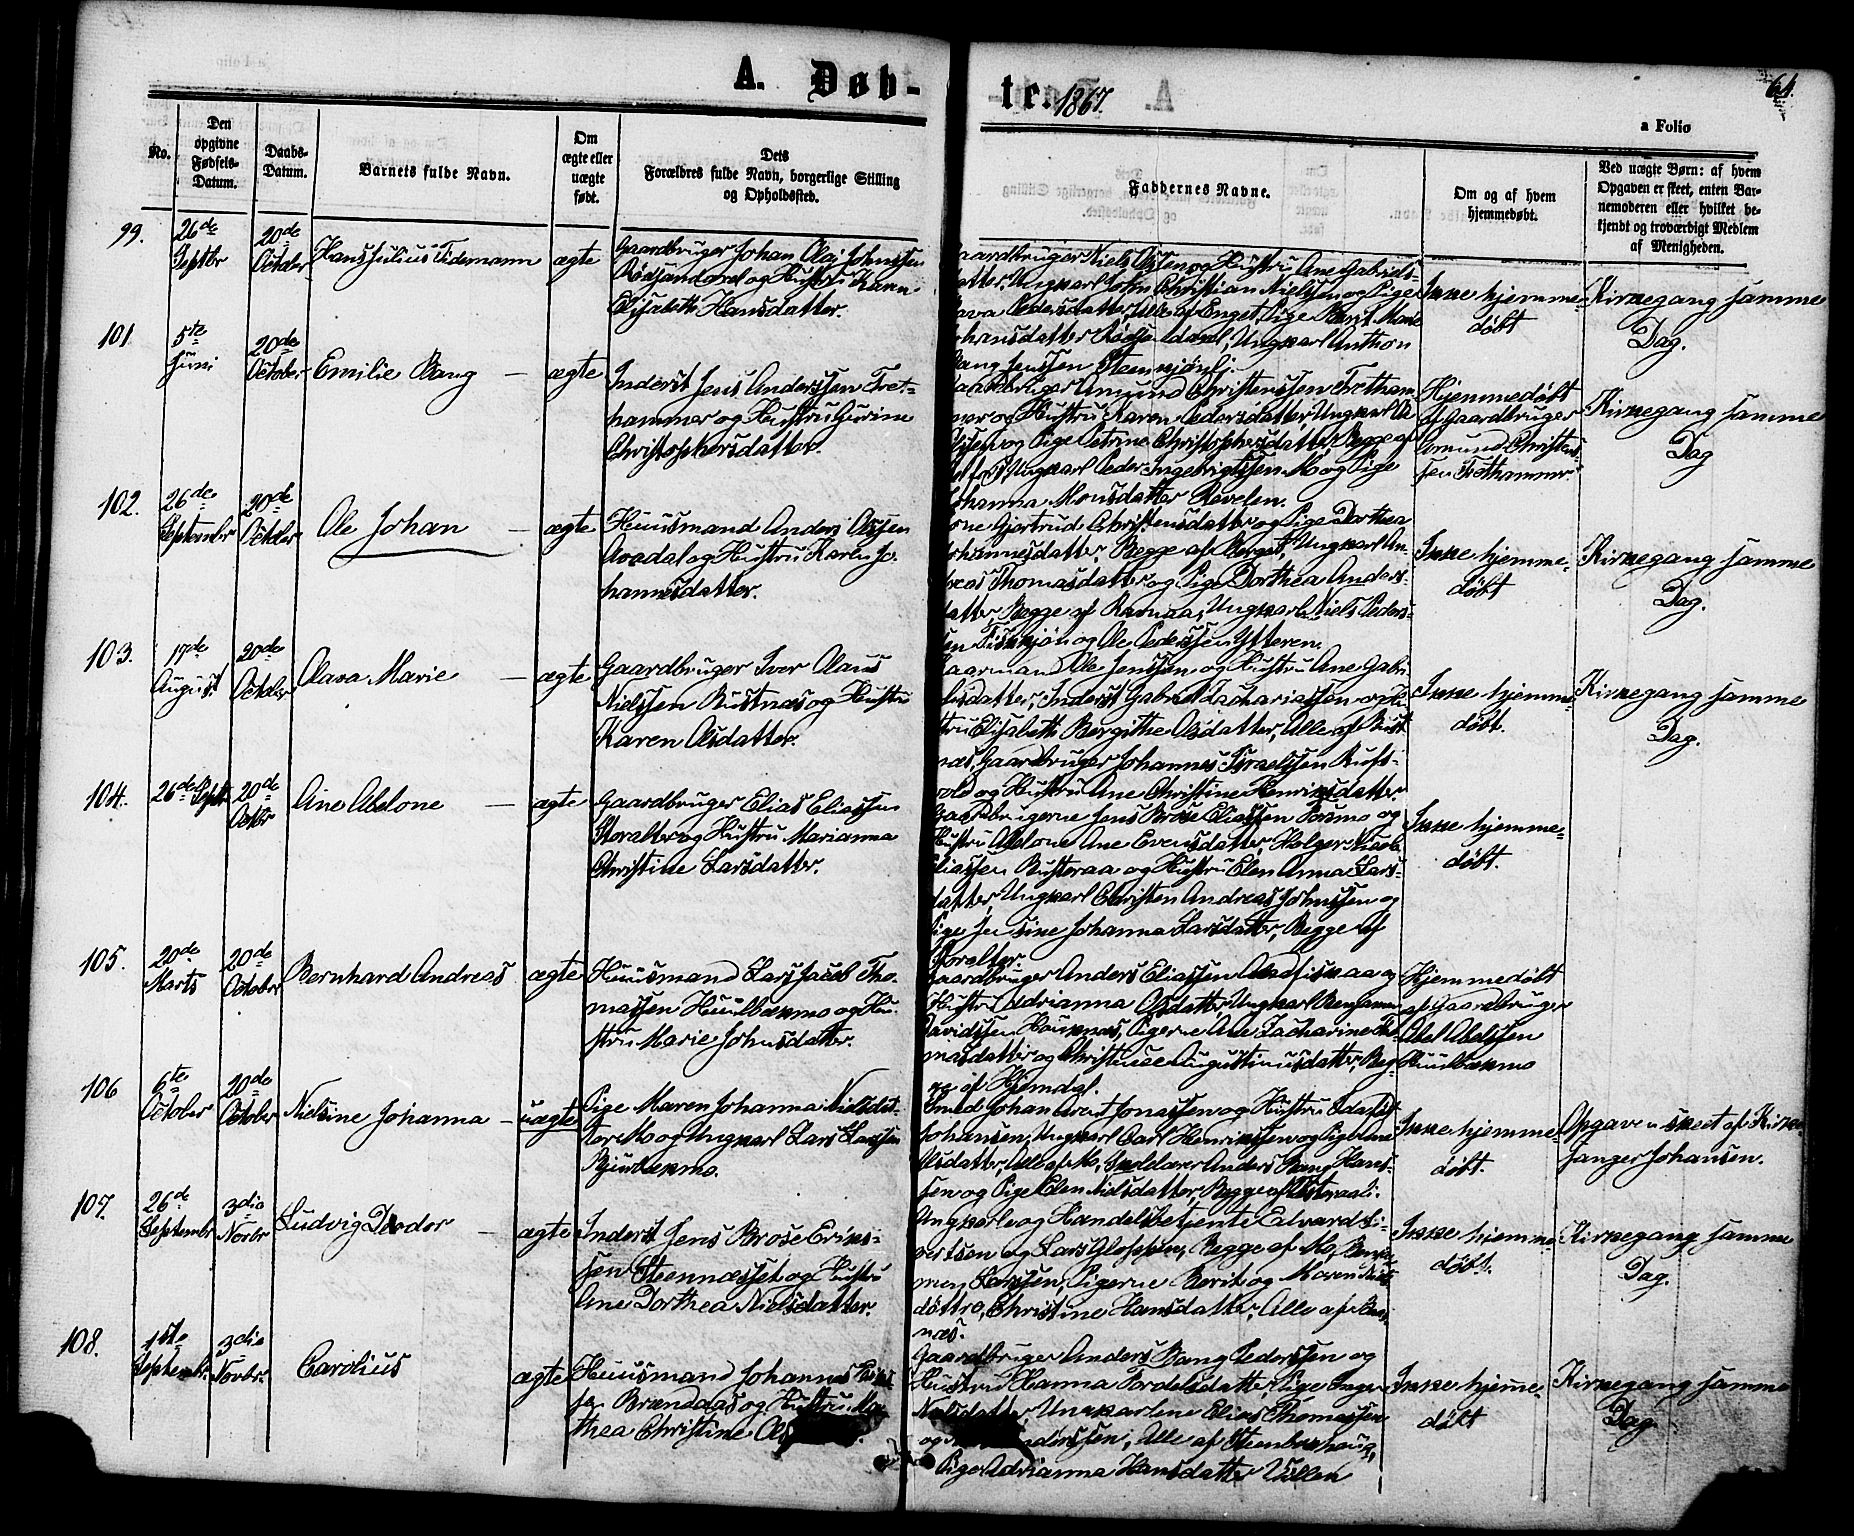 A. Døb-
te. 1867.
64.
a Folio
No.
Den opgivne Fødsels-Datum.
Daabs-Datum.
Barnets fulde Navn.
Om ægte eller uægte født.
Dets Forældres fulde Navn, borgerlige Stilling og Opholdssted.
Faddernes Navne.
Om og af hvem hjemmedøbt.
Ved uægte Børn: af hvem Opgaven er skeet, enten Barnemoderen eller hvilket bekjendt og troværdigt Medlem af Menigheden.
99.
26de Septbr
20de October
Hans Julius Tidemann
ægte
Gaardbruger Johan Olaj Johnssen
og Hustru Karen
Elisabeth Hansdatter.
aardbruger Niels Olssen og Hustru Ane Gabriels-
datter, Ungkarl John Christian Nielssen og Pige
Pedersdatter, Alle af Enget, Pige Berit Marie
Johansdatter Ungkarl Anthon
Bang Jenssen
Ikke hjemme-
døbt
Kirkegang samme
Dag.
101
5te Juni
20de October
Emilie Bang
ægte
Inderst Jens Anderssen Tret-
hammer og Hustru Gurine
Christophersdatter.
Amund Christenssen Tretham-
mer og Hustru Karen Pedersdatter, Ungkarl
og Pige Petrine Christophersdatter, Begge af
Ungkarl Peder Ingebrigtssen Mo og Pige
Johanna Monsdatter Revelen.
Hjemmedøbt
af Gaardbruger
Amund Christens-
sen Trethammer.
Kirkegang samme
Dag
102.
26de September
20de October
Ole Johan
ægte
Huusmand Anders Olssen
og Hustru Karen Jo-
hannesdatter.
Kone Gjertrud Christensdatter og Pige Dorthea
Johannesdatter, Begge af Berget, Ungkarl An-
dreas Thomasdatter og Pige Dorthea Anders-
datter, Begge af Ravnaa, Ungkarle Niels Peders-
sen og Ole Pederssen Ytteren.
Ikke hjemme-
døbt
Kirkegang samme
Dag.
103.
17de August
20de October
Olava Marie
ægte
Gaardbruger Iver Olaus
Nielssen Bustnæs og Hustru
Karen Olsdatter.
Kaarmand Ole Jenssen og Hustru Ane Gabri-
elsdatter, Inderst Gabriel Zachariassen og Hu-
stru Elisabeth Bergithe Olsdatter, Alle af Bust-
næs, Gaardbruger Johannes Israelssen Rufs-
old og Hustru Ane Christine Henriksdatter.
Ikke hjemme-
døbt.
Kirkegang samme
Dag.
104.
26de Septr
20de Octbr
Ane Abelone
ægte
Gaardbruger Elias Eliassen
Storalter og Hustru Marianna
Christine Larsdatter.
Gaardbrugerne Jens Brose Eliassen Forsmo og
Hustru Abelone Ane Evensdatter, Holger
Eliassen Busteraa og Hustru Elen Anna Lars-
datter, Ungkarl Christen Andreas Johnssen og
Pige Jensine Johanna Larsdatter, Begge af
Storalter.
Ikke hjemme-
døbt.
105.
20de Marts
20de October
Bernhard Andreas
ægte
Huusmand Lars Jacob Tho-
massen Huulbækmo og Hu-
stru Marie Johnsdatter.
Gaardbruger Anders Eliassen og
Hustru Adrianna Olsdatter, Ungkarl Benjamin
Davidssen Pigerne Ane Zacharine Tho-
masdatter og Christense Augustinusdatter, Beg-
ge af Hjemdal.
Hjemmedøbt
af Gaardbruger
Abel Abelssen
Huulbækmo
106
6te October
20de October
Nielsine Johanna
uægte
Pige Maren Johanna Nielsdat-
ter Mo og Ungkarl Lars Larssen
Bjurbækmo.
Smed Johan Arent Jonassen og Hustru Ida
Johansen, Ungkarl Carl Henrikssen og Pige Ane
Olsdatter, Alle af Mo, Skolelærer Anders Bang Hans-
sen og Pige Elen Nielsdatter, Begge af
Ikke hjemme-
døbt.
Opgaven skeet af Kirke-
sanger Johansen.
107.
26de Septembr
3die Novbr
Ludvig Teodor
ægte
Inderst Jens Brose Eriks-
sen Steennæsset og Hustru
Ane Dorthea Nielsdatter.
Ungkarle og Handelsbetjente Edvard Si-
vertsen og Lars Begge af Mo,
Larssen, Pigerne Berit og Maren Niels-
døttre, Christine Hansdatter, Alle af
næs.
Ikke hjemme-
døbt.
Kirkegang samme
Dag.
108.
1ste Septembr.
3die Novbr.
Carolius
ægte
Huusmand Johannes
sen Brændaas og Hustru
thea Christine
Gaardbruger Anders Bang Pederssen og
Hustru Hanna Tordelsdatter, Pige Inger
Nielsdatter, Ungkarlene Elias Thomassen
og Anderssen, Alle af Steenbækhaug,
Pige Adrianna Hansdatter
Ikke hjemme-
døbt
Kirkegang samme
Dag